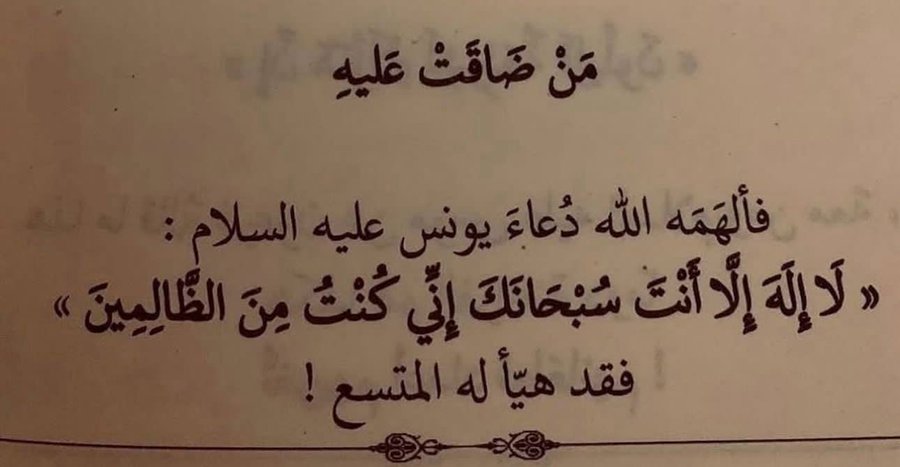 مَنْ ضَاقَتْ عَليهِ
فألهَمَه الله دُعاءَ يونس عليه السلام :
« لَا إِلَهَ إِلَّا أَنْتَ سُبْحَانَكَ إِنِّي كُنْتُ مِنَ الظَّالِمِينَ »
فقد هيّأ له المتسع !